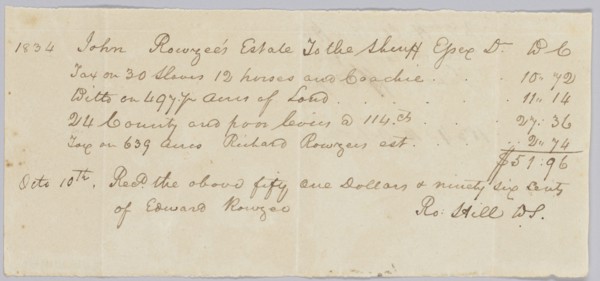 1834 John Rowzee's Estate To the Sheriff Essex Dr. D C
Tax on 30 Slaves 12 horses and Coachie . . . 10.. 72
Ditto on 497 acres of Land . . . . . 11.. 14
24 County and poor levies @ 114 cts 27. 36
Tax on 639 acres Richard Rowzees est. . . 2.. 74
$51. 96
Octo 10th. Recd. the above fifty one Dollars & ninety six Cents
of Edward Rowzee Ro: Hill DS.